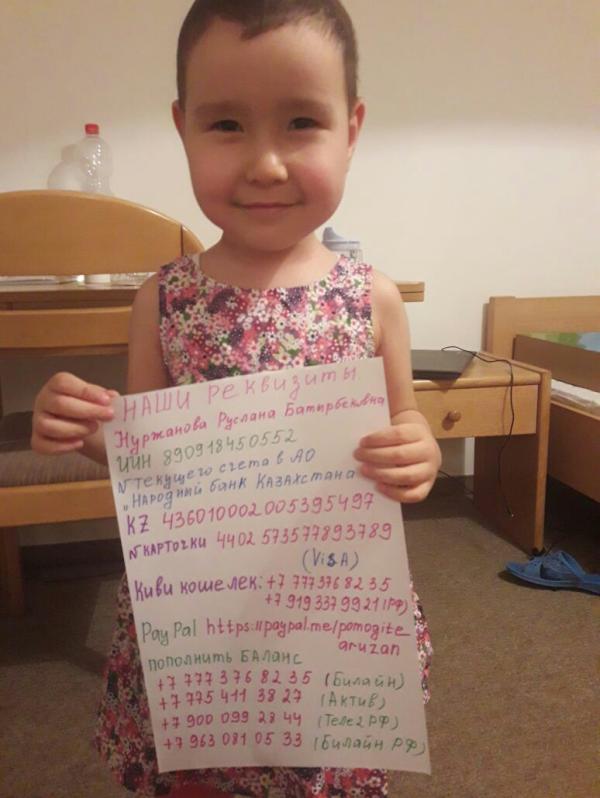 НАШИ РЕКВИЗИТЫ
Нуржанова Руслана Батырбековна
ИИН 890918450552
№ текущего счета в АО
"Народный банк Казахстана
KZ 436010002005395497
№ карточки 4402 573577893789
(VISA)
Киви кошелек: +7 777 376 82 35
+7 919 337 99 21 (РФ)
PayPal https://paypal.me/pomogite
aruzan
пополнить БАЛАНС
+7 777 376 82 35 (Билайн)
+7 775 411 38 27 (Актив)
+7 900 099 28 44 (Теле2 РФ)
+7 963 081 05 33 (Билайн РФ)